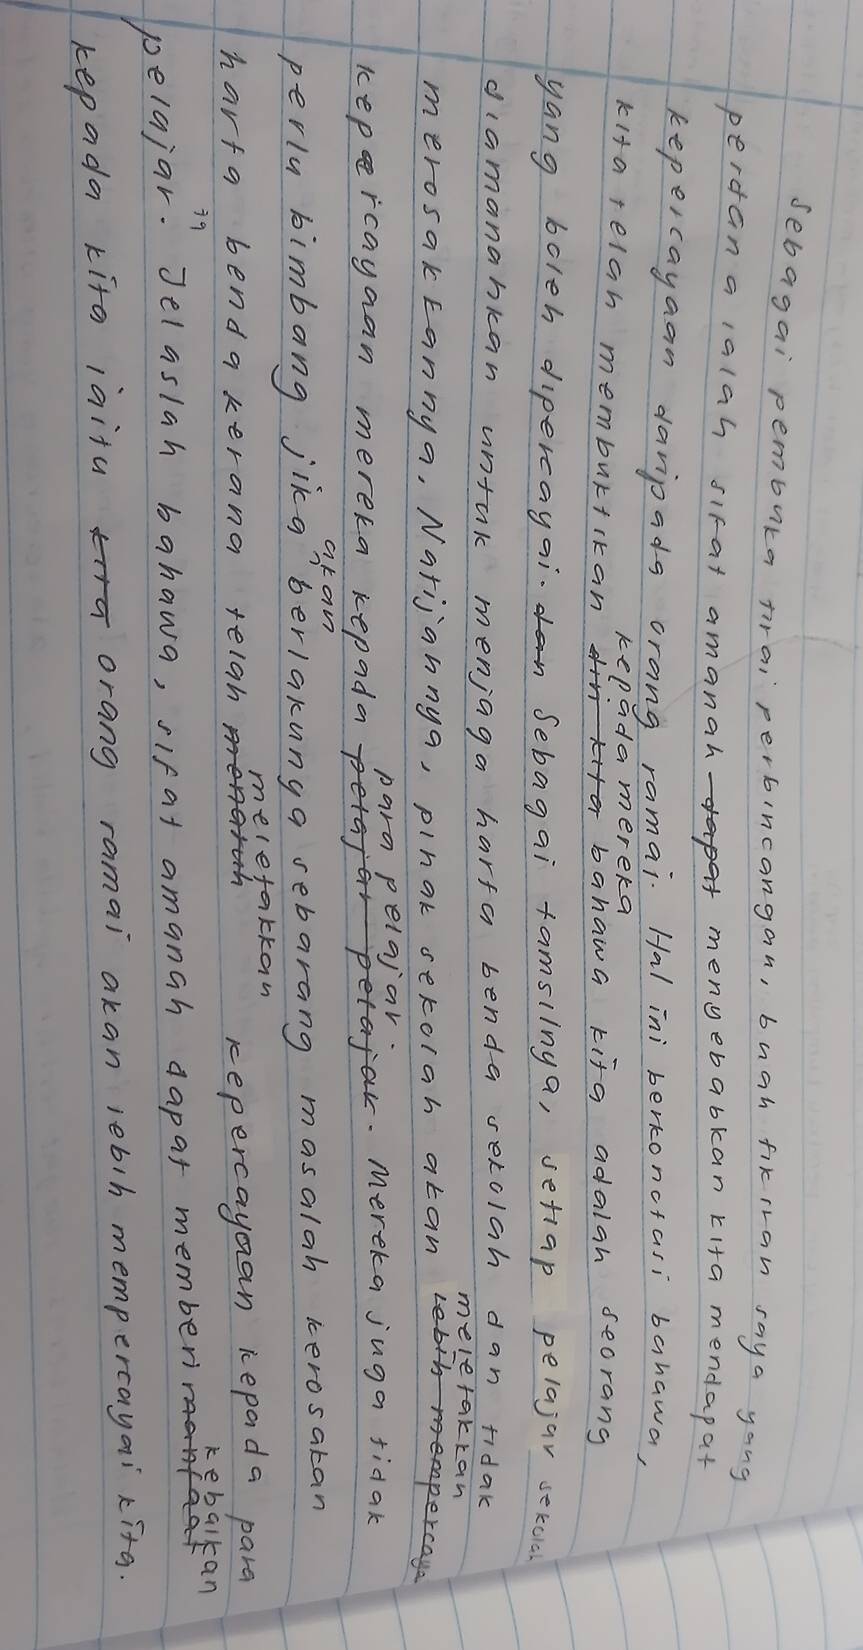 Sebagai pembuka tirai perbincangan, buah fikiran saya yang
perdana ialah sifat amanah dapat menyebabkan kita mendapat
kepercayaan daripada orang ramai. Hal ini berkonotasi bahawa,
kita telah membuktikan diri kita kepada mereka bahawa kita adalah seorang
yang boleh dipercayai. dan Sebagai tamsilnya, setiap pelajar sekolah
diamanahkan untuk menjaga harta benda sekolah dan tidak
merosakkannya. Natijahnya, pihak sekolah akan lebih mempercaya meletakkan
kepercayaan mereka kepada pelajar-pelajar. para pelajar. Mereka juga tidak
perlu bimbang jika akan berlakunya sebarang masalah kerosakan
harta benda kerana telah menaruh meletakkan kepercayaan kepada para
pelajar. Jelaslah bahawa, sifat amanah dapat memberi manfaat kebaikan
kepada kita iaitu kita orang ramai akan lebih mempercayai kita.